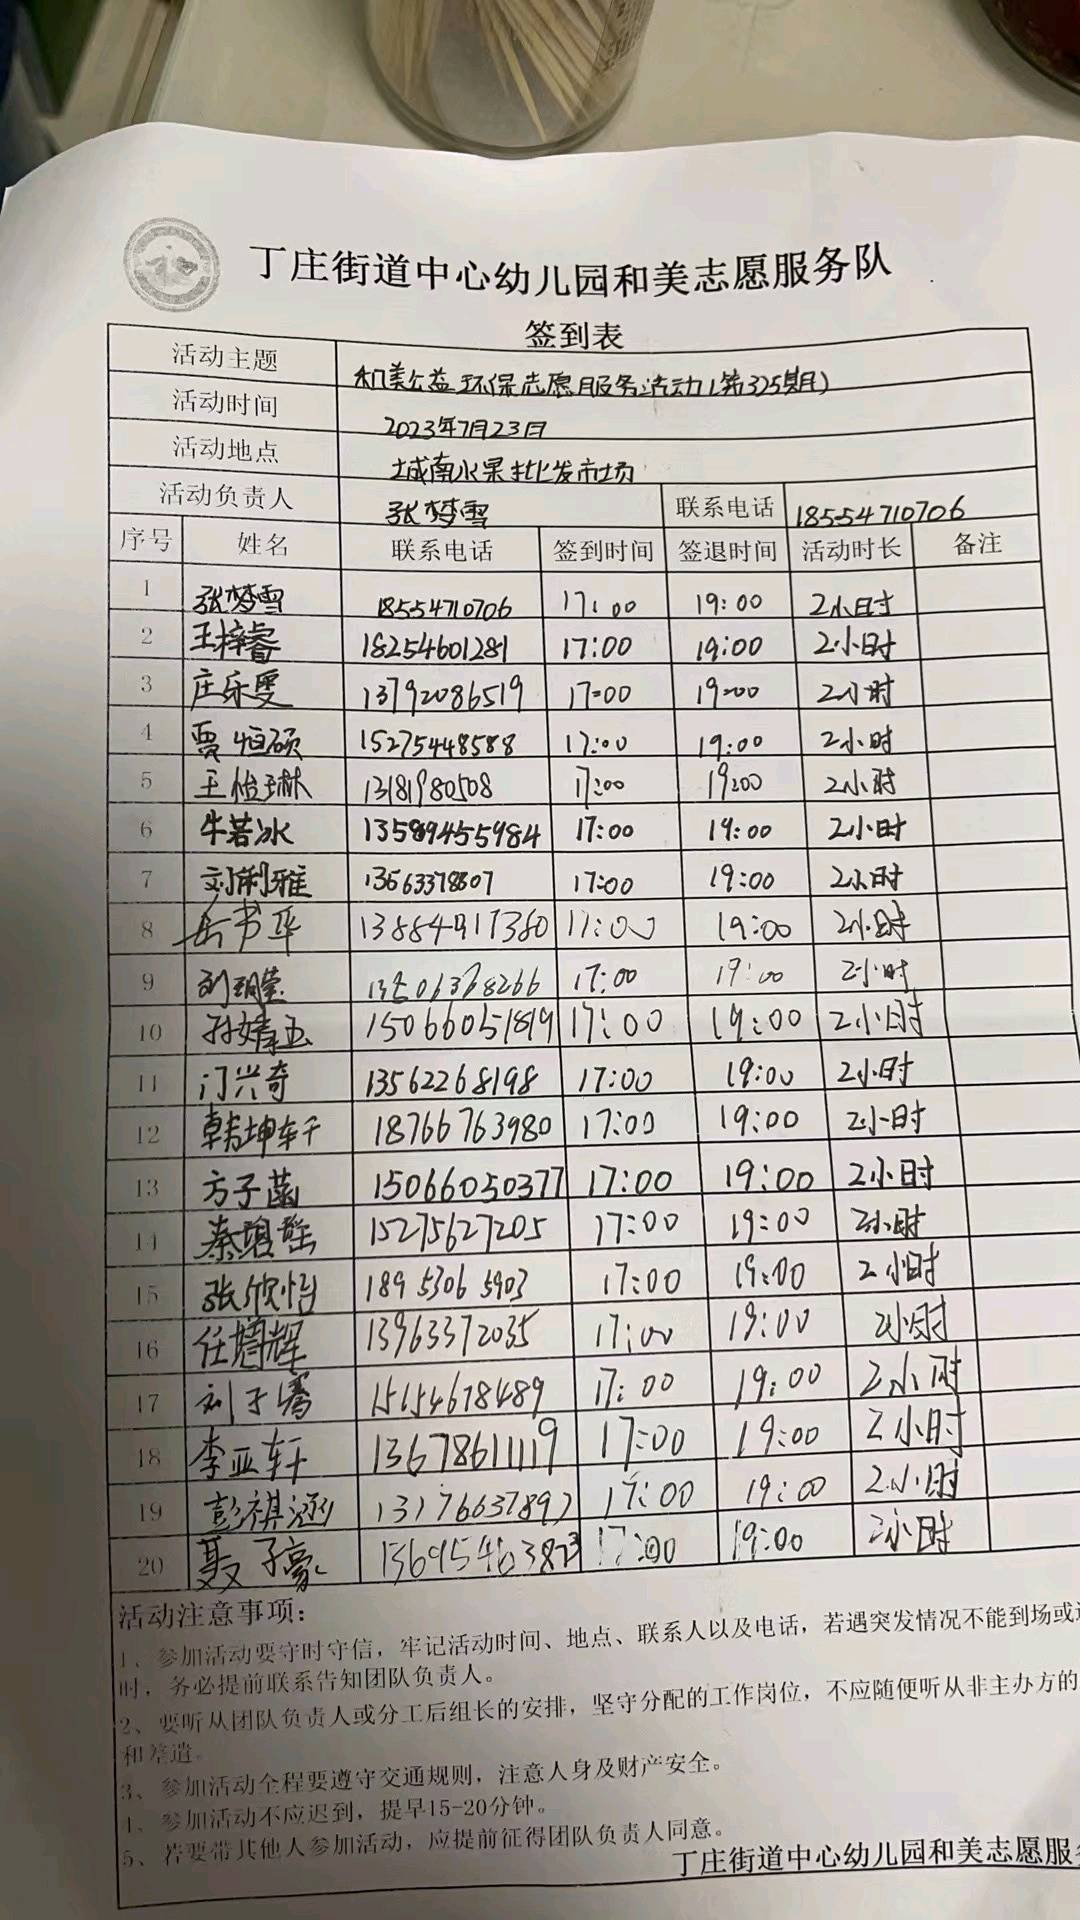 丁庄街道中心幼儿园和美志愿服务队
签到表
活动主题 和美公益环保志愿服务活动(第325期)
活动时间 2023年7月23日
活动地点 城南水果批发市场
活动负责人 张梦雪 联系电话 18554710706
序号 姓名 联系电话 签到时间 签退时间 活动时长 备注
1 张梦雪 18554710706 17:00 19:00 2小时
2 王梓睿 18254601281 17:00 19:00 2小时
3 庄乐雯 13792086519 17:00 19:00 2小时
4 贾恒硕 15275448588 17:00 19:00 2小时
5 王怡琳 13181980508 17:00 19:00 2小时
6 牛若冰 13589455984 17:00 19:00 2小时
7 刘俐雅 13563378807 17:00 19:00 2小时
8 岳书华 13884917380 17:00 19:00 2小时
9 17:00 19:00 2小时
10 孙婧玉 15066051819 17:00 19:00 2小时
11 门兴奇 13562268198 17:00 19:00 2小时
12 韩坤轩 18766763980 17:00 19:00 2小时
13 方子菡 15066050377 17:00 19:00 2小时
14 15275627205 17:00 19:00 2小时
15 张欣怡 18953065903 17:00 19:00 2小时
16 13963372035 17:00 19:00 2小时
17 刘子骞 15154678489 17:00 19:00 2小时
18 李亚轩 13678611119 17:00 19:00 2小时
19 彭祺涵 13176637897 17:00 19:00 2小时
20 聂子豪 17:00 19:00 2小时
活动注意事项:
1、参加活动要守时守信,牢记活动时间、地点、联系人以及电话,若遇突发情况不能到场或
时,务必提前联系告知团队负责人。
2、要听从团队负责人或分工后组长的安排,坚守分配的工作岗位,不应随便听从非主办方的
和差遣。
3、参加活动全程要遵守交通规则,注意人身及财产安全。
4、参加活动不应迟到,提早15-20分钟。
5、若要带其他人参加活动,应提前征得团队负责人同意。
丁庄街道中心幼儿园和美志愿服